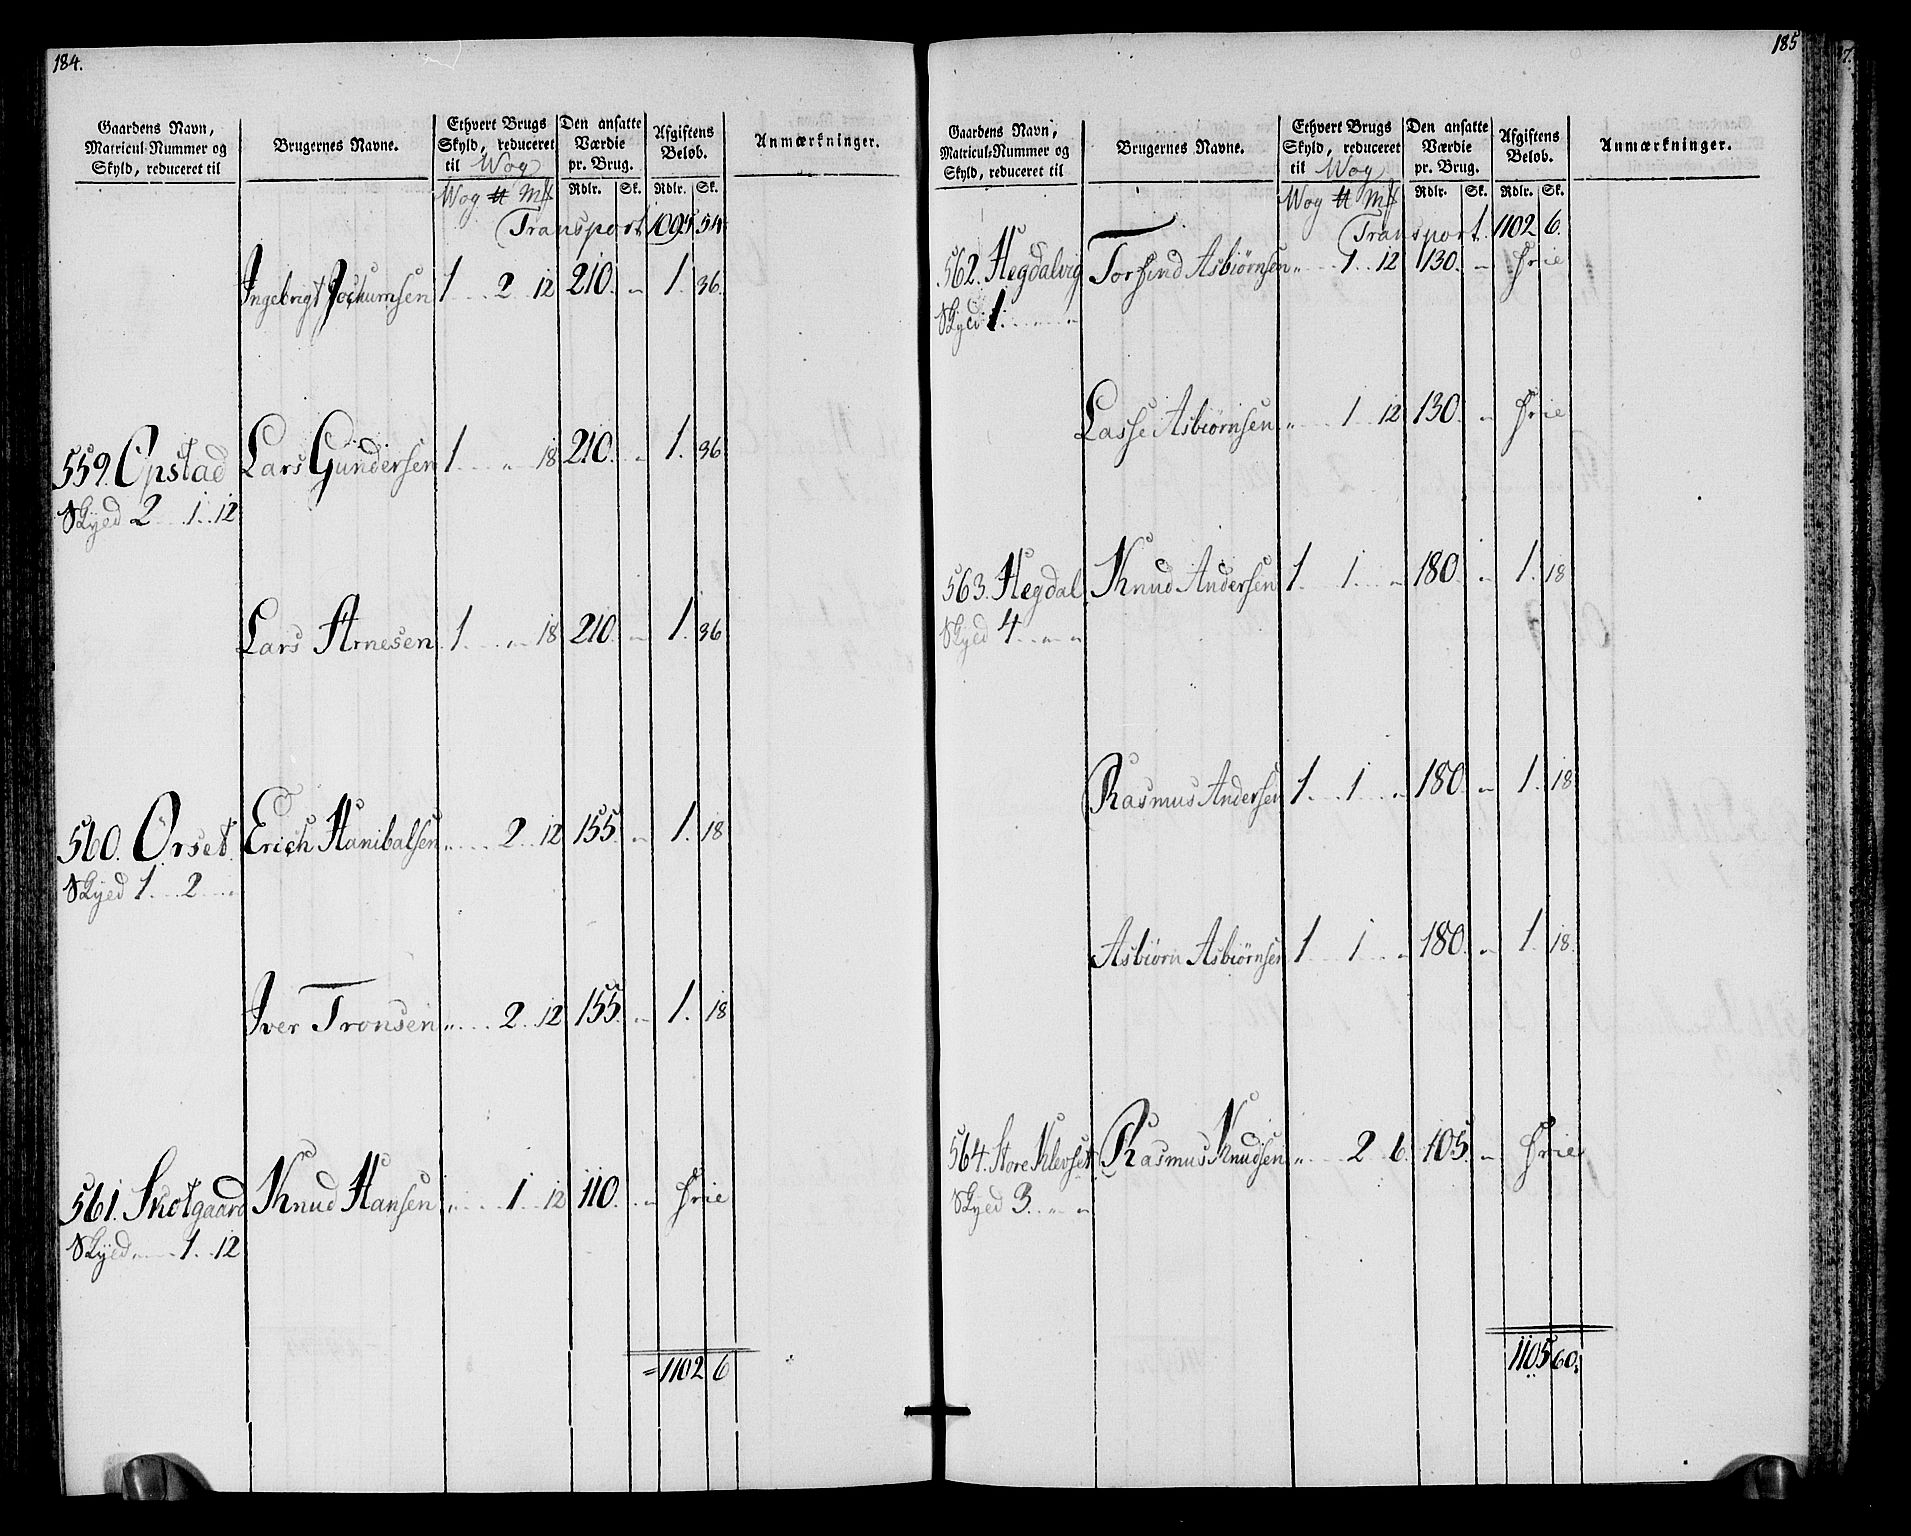 184.
Gaardens Navn, Matricul-Nummer og Skyld, reduceret til
Brugernes Navne.
Ethvert Brugs Skyld, reduceret til Wog
Den ansatte Værdie pr. Brug.
Afgiftens Beløb.
Anmærkninger.
Wog ℔ M℔ Rdlr. Sk. Rdlr. Sk.
Transport 1095 54
Ingebrigt Jochumsen 1 .. 2 .. 12 210. " 1. 36.
559. Opstad Lars Gundersen 1 .. " 18 210. " 1. 36
Skyld 2 .. 1 .. 12
Lars Arnesen 1 .. " 18 210. " 1. 36
560. Orset. Erich Hanibalsen " .. 2 .. 12 155. " 1. 18
Skyld 1 .. 2 .. "
Iver Tronsen " .. 2 .. 12 155. " 1. 18
561. Skotgaard Knud Hansen " .. 1 .. 12 110. " frie
Skyld " .. 1 .. 12
= 1102 6
185
Gaardens Navn, Matricul-Nummer og Skyld, reduceret til
Brugernes Navne.
Ethvert Brugs Skyld, reduceret til Wog
Den ansatte Værdie pr. Brug.
Afgiftens Beløb.
Anmærkninger.
Wog ℔ M℔ Rdlr. Sk. Rdlr. Sk.
Transport. 1102 6.
562. Hegdalvig Torfind Asbiørnsen " .. 1 .. 12 130. " frie
Skyld 1 .. " .. "
Lasse Asbiørnsen " .. 1 .. 12 130. " frie
563. Hegdal Knud Andersen 1 .. 1 .. " 180. " 1. 18
Skyed 4 .. " .. "
Rasmus Andersen 1 .. 1 .. " 180. " 1. 18
Asbiørn Asbiørnsen 1 .. 1 .. " 180. " 1. 18.
564. Store Klevset Rasmus Knudsen " .. 2 .. 6. 105. " frie
Skyed 3 .. " .. "
1105 60.